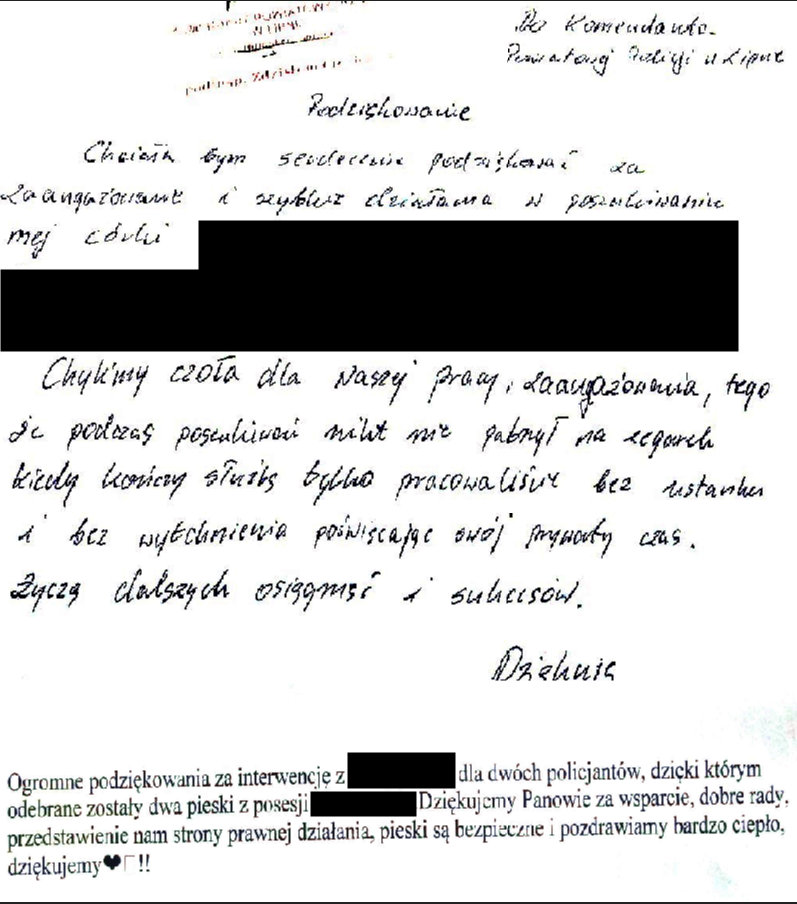 W LIPNIE
Do Komendanta
Powiatowej Policji w Lipnie
Podziękowanie
Chciała bym serdecznie podziękować za
zaangażowanie i szybkie działania w poszukiwaniu
mej córki
Chylimy czoła dla Waszej pracy, zaangażowania, tego
że podczas poszukiwań nikt nie patrzył na zegarek
kiedy kończy służbę tylko pracowaliście bez ustanku
i bez wytchnienia poświęcając swój prywatny czas.
Życzę dalszych osiągnięć i sukcesów.
Dziękuję
Ogromne podziękowania za interwencję z dla dwóch policjantów, dzięki którym
odebrane zostały dwa pieski z posesji Dziękujemy Panowie za wsparcie, dobre rady,
przedstawienie nam strony prawnej działania, pieski są bezpieczne i pozdrawiamy bardzo ciepło,
dziękujemy❤!!